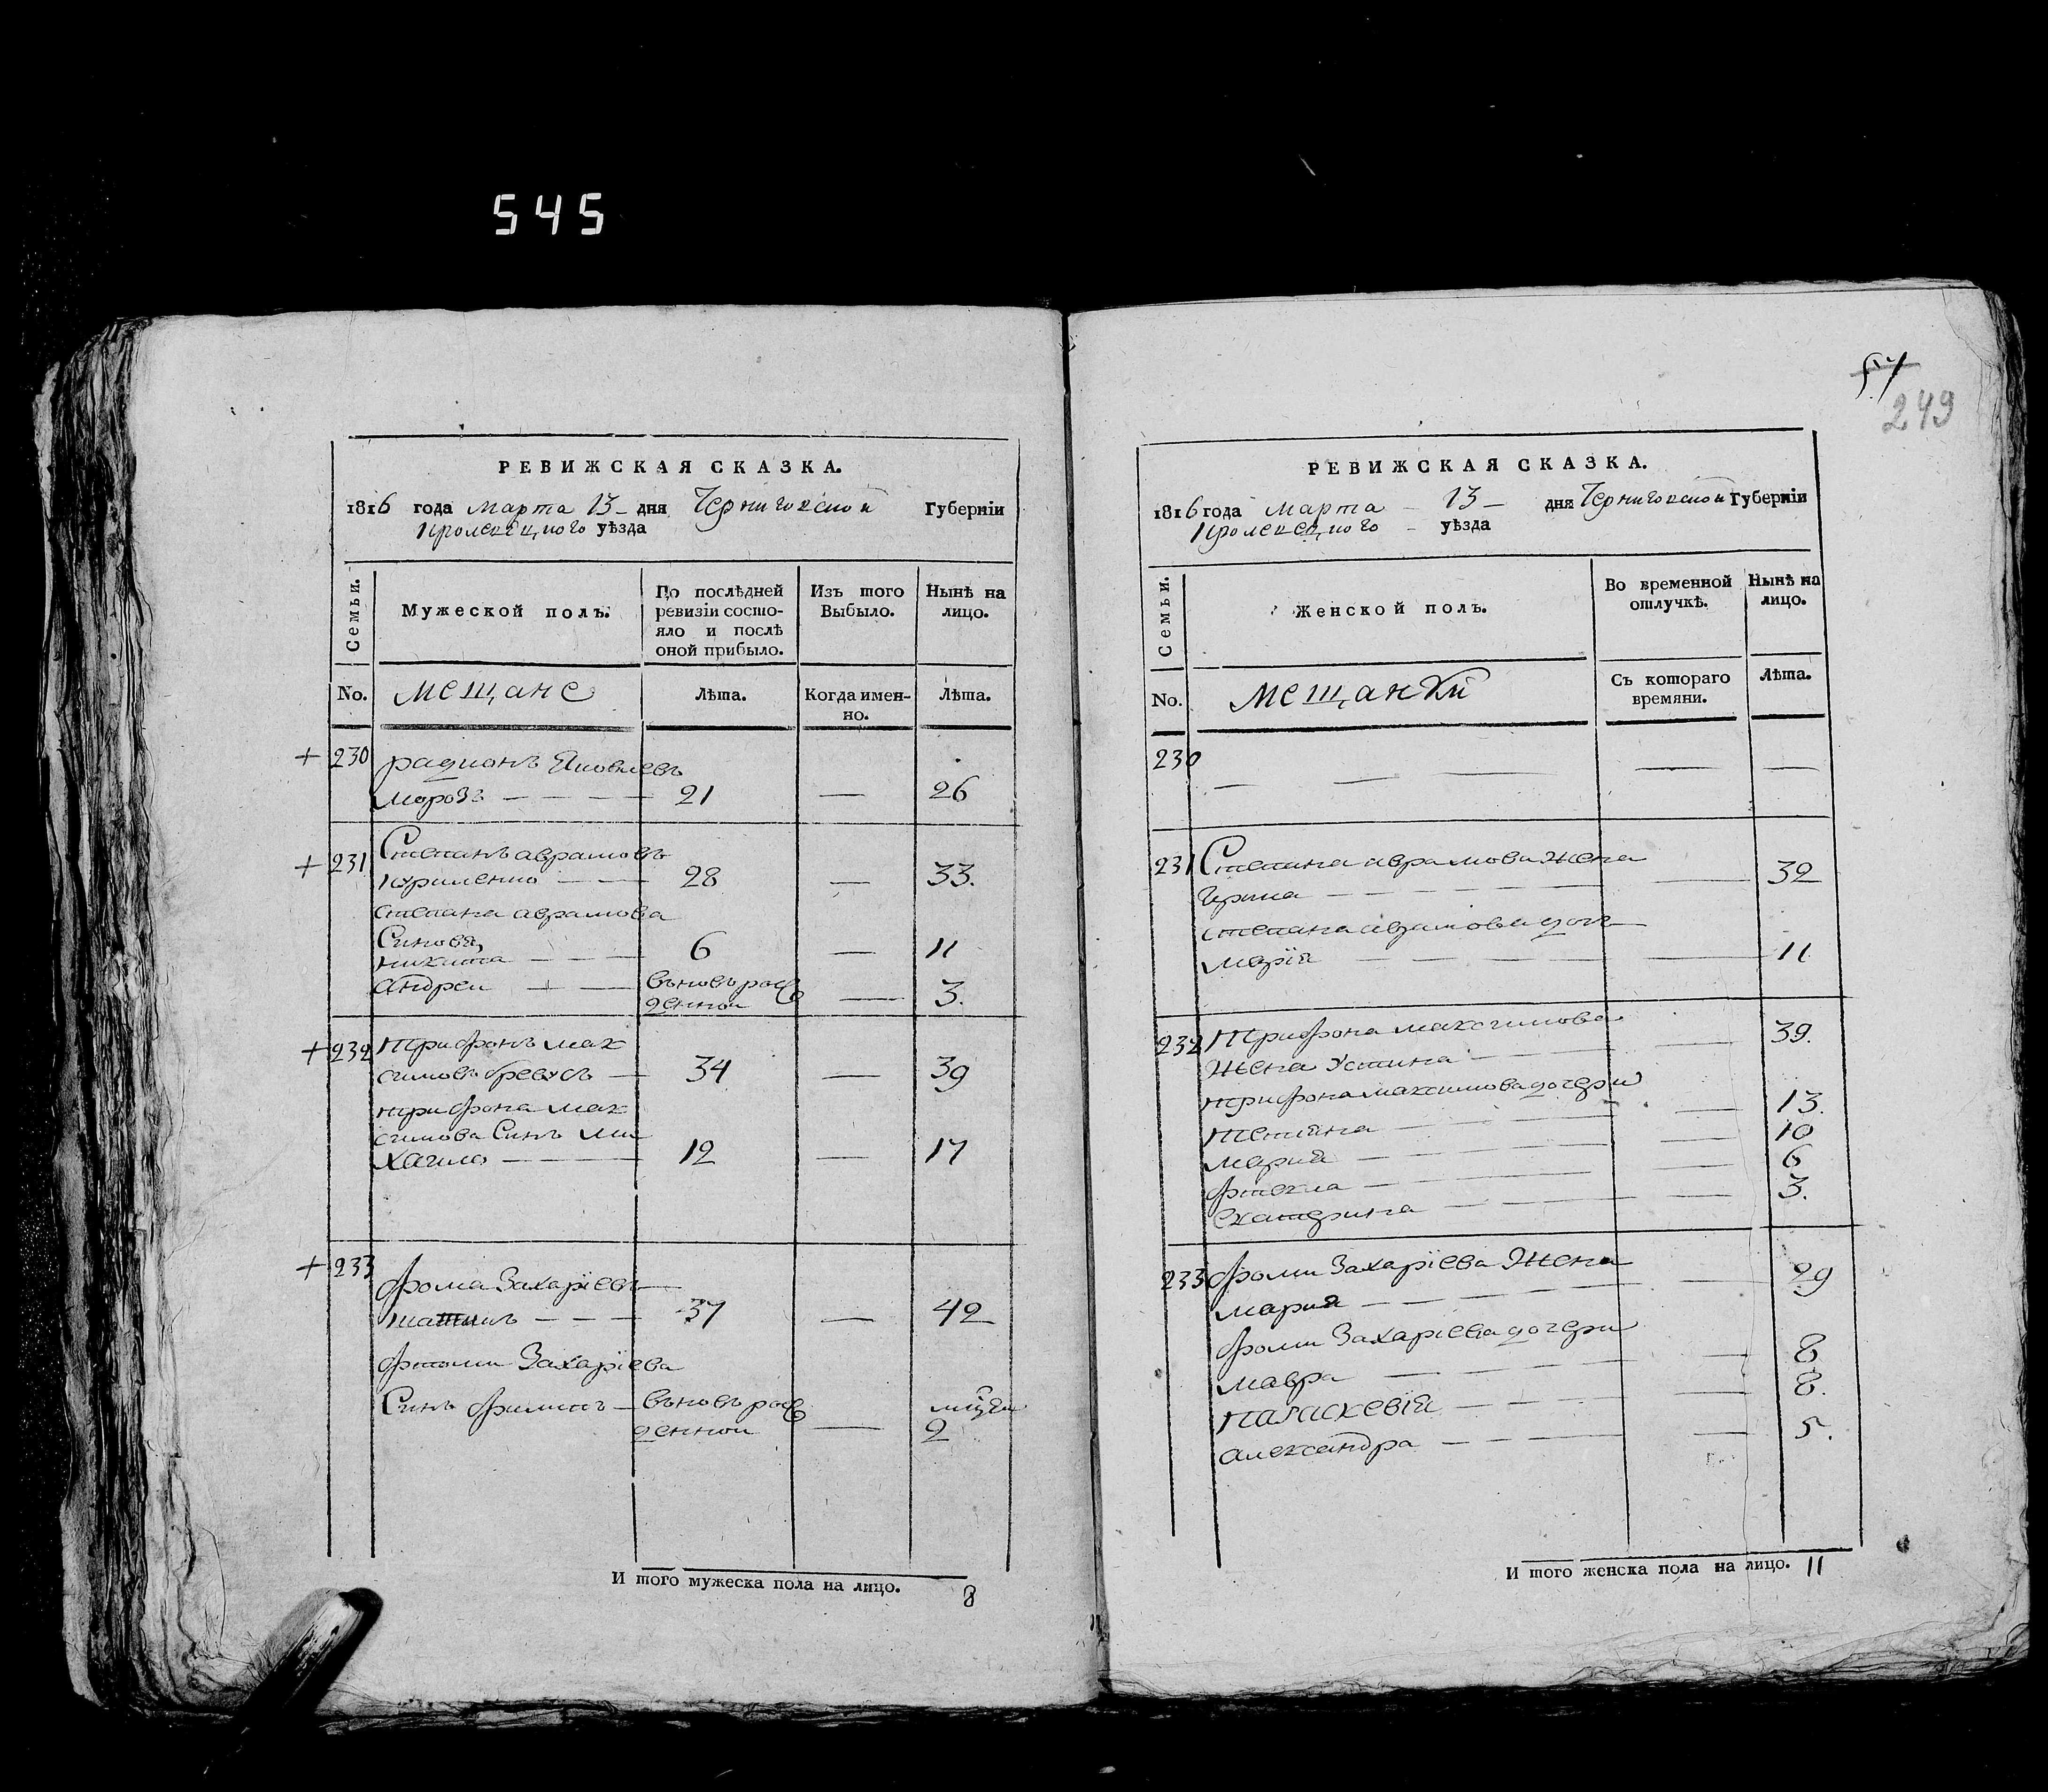 545
РЕВИЖСКАЯ СКАЗКА.
1816 года марта 13 — дня Черниговской Губернїи
Кролевецкого уѣзда
Семьи.
Мужеской полъ.
По послѣдней ревизїи состо-
яло и послѣ
оной прибыло.
Изъ того
Выбыло.
Нынѣ на
лицо.
No.
мещане
Лѣта.
Когда имен-
но.
Лѣта.
+ 230 радионъ Яковлевъ
морозъ — — — — 21 — 26
+ 231 Степанъ аврамовъ
— — 28 — 33.
степана аврамова
Синовя
никита — — — 6 — 11
андреи — — вьновь рож
денной — 3.
+ 232 трифонъ мак
симовъ — 34 — 39
трифона мак
симова Синъ ми
хаило — — — 12 — 17
+ 233 фома Захарїевъ —
— — — 37 — 42
фтоми Захарїева
Синъ филипъ — вьновь рож
денной — 2
И того мужеска пола на лицо. 8
57
249
РЕВИЖСКАЯ СКАЗКА.
1816 года марта — 13 — дня Черниговской Губернїи
Кролевецкого — уѣзда
Семьи.
Женской полъ.
Во временной
отлучкѣ.
Нынѣ на
лицо.
No.
мещанки
Съ котораго
времяни.
Лѣта.
230 — — — — —
231 Степана аврамова жена
— — — — — — 32
степана аврамова доч
марїя — — — — — 11
232 Трифона максимова
жена Устина — — — 39.
трифона максимова дочери
татияна — — — — 13.
мария — — — — 10
фтекла — — — — 6
екатерина — — — — 3.
233 фоми Захарїева Жена
мария — — — — — 29
фоми Захарїева дочери
мавра — — — — — 8
параскевїя — — — — 8.
александра — — — — 5.
И того женска пола на лицо. 11